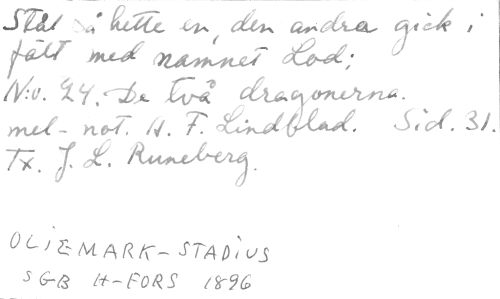 Stål så hette en, den andra gick i
fält med namnet Lod;
N:o. 24. De två dragonerna.
mel-not. H. F. Lindblad. Sid. 31.
Tx. J. L. Runeberg.
OLIEMARK-STADIUS
SGB H-FORS 1896